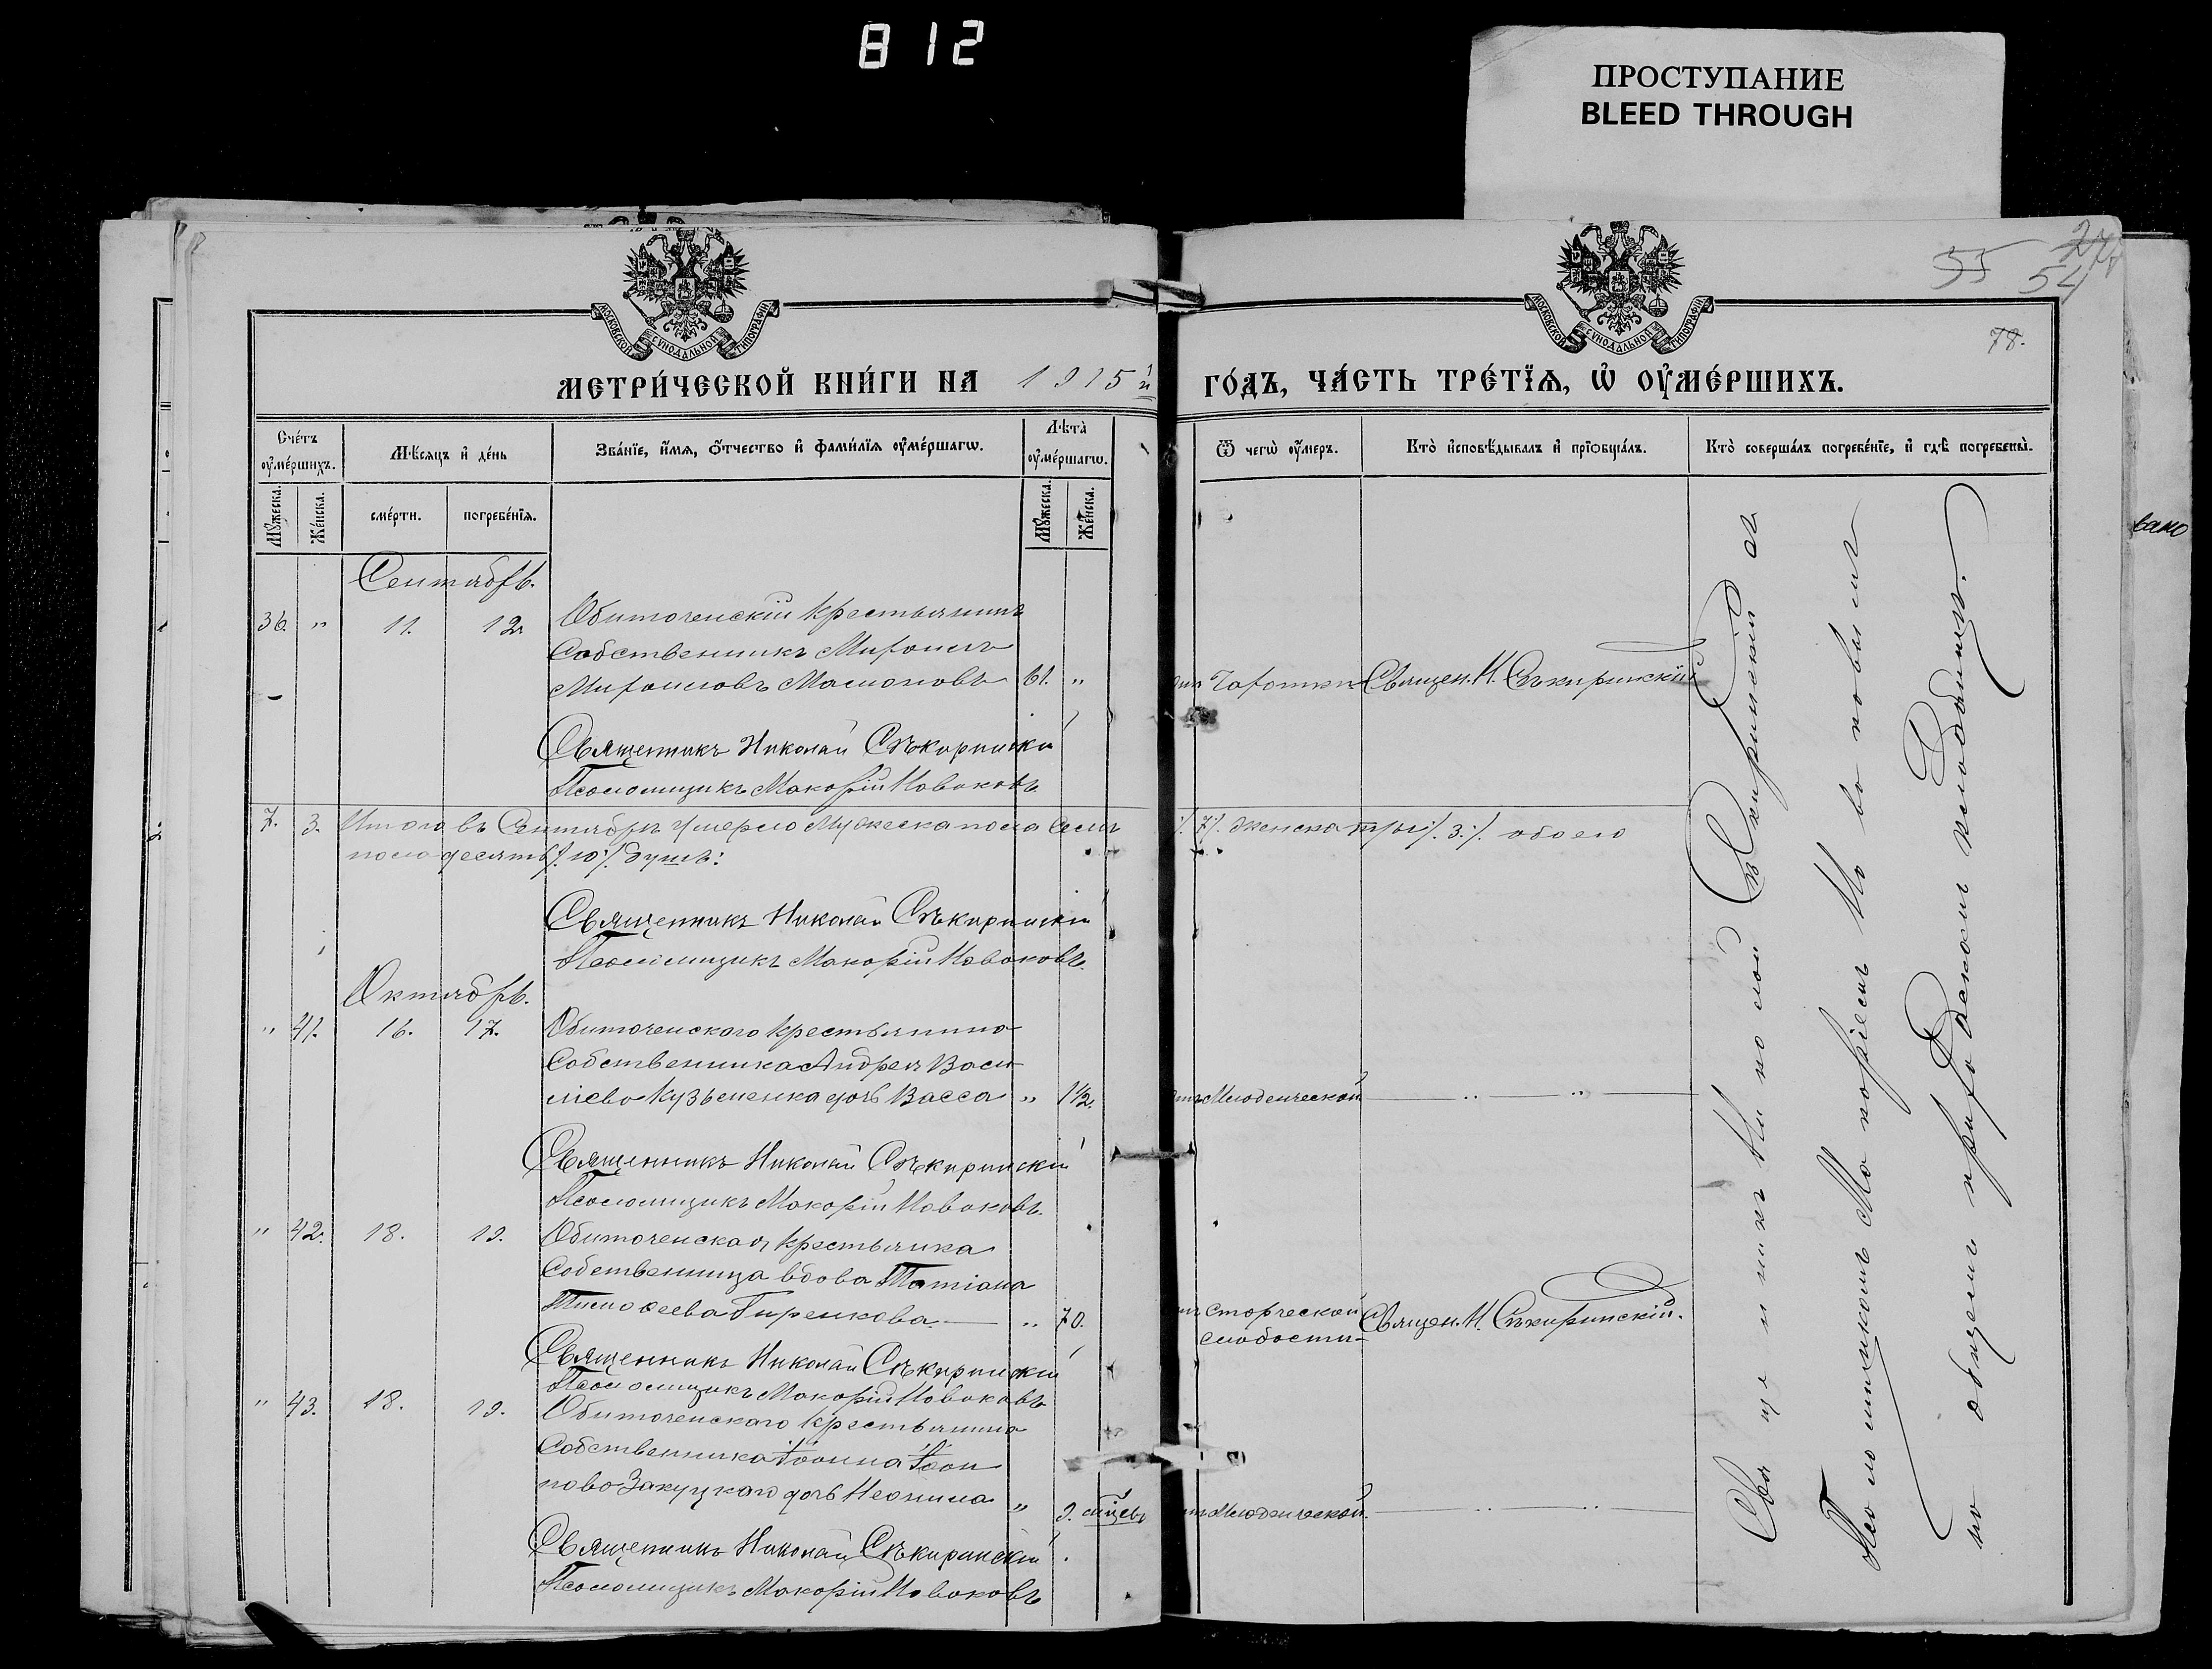 812
ПРОСТУПАНИЕ
BLEED THROUGH
55 27
54
78.
МОСКОВСКОЙ СѴНОДАЛЬНОЙ ТИПОГРАФІИ
МОСКОВСКОЙ СѴНОДАЛЬНОЙ ТИПОГРАФІИ
МЕТРИ́ЧЕСКОЙ КНИ́ГИ НА 1915й ГО́ДЪ, ЧА́СТЬ ТРЕ́ТЇѦ, Ѡ҆ ОУ҆МЕ́РШИХЪ.
Сче́тъ оу҆ме́ршихъ.
Мꙋ́жеска.
Же́нска.
Мѣ́сяцъ и҆ де́нь
сме́рти.
погребе́нїѧ.
Зва́нїе, и҆́мѧ, ѻ҆́тчество и҆ фами́лїѧ оу҆ме́ршагѡ.
Лѣ̀та оу҆ме́ршагѡ.
Мꙋ́жеска.
Же́нска.
Ѿ чегѡ̀ оу҆́меръ.
Кто̀ и҆сповѣ́дывалъ и҆ прїѻбща́лъ.
Кто̀ соверша́лъ погребе́нїе, и҆ гдѣ̀ погребены̀.
Сентябрь.
36. " 11. 12. Обиточенскій крестьянинъ
Собственникъ Миронъ
Мироновъ Масюковъ 61. " Чахотки Священ. Н. Сѣкиринскій
Священникъ Николай Сѣкиринскій
Псаломщикъ Макарій Новаковъ
7. 3. Итого въ Сентябрѣ умерло Мужеска пола Семь ·/. 7·/. женска три ·/. 3·/. обоего
пола десять ·/. 10·/. душъ:
Священникъ Николай Сѣкиринскій
Псаломщикъ Макарій Новаковъ.
Октябрь.
" 41. 16. 17. Обиточенскаго крестьянина
Собственника Андрея Васи
ліева Кузьменка дочь Васса " 1½. Младенческой
Священникъ Николай Сѣкиринскій
Псаломщикъ Макарій Новаковъ.
" 42. 18. 19. Обиточенская крестьянка
Собственница вдова Татіана
Тимофеева Гиренкова. — " 70. Старческой Священ. Н. Сѣкиринскій.
слабости
Священникъ Николай Сѣкиринскій
Псаломщикъ Макарій Новаковъ
" 43. 18. 19. Обиточенскаго крестьянина
Собственника Іоанна Іоан
нова Закуцкаго дочь Неонила " 9. мѣцевъ Младенческой.
Священникъ Николай Сѣкиринскій
Псаломщикъ Макарій Новаковъ
Священникъ Николай Сѣкиринскій съ
Псаломщикомъ Макаріемъ Новаковымъ
на общемъ приходскомъ кладбищѣ.